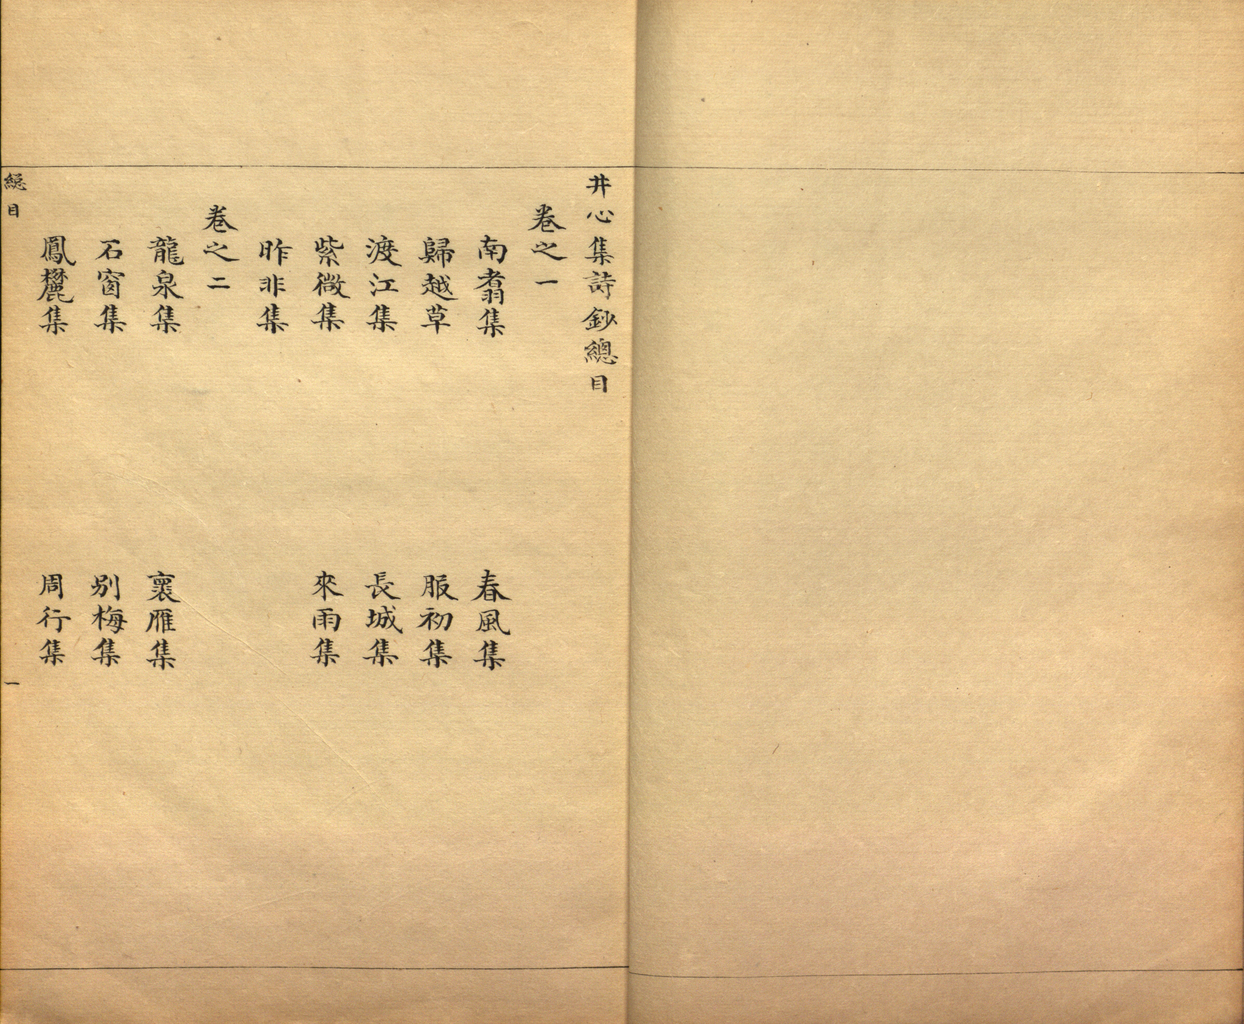 井心集詩鈔總目
卷之一
南翥集
春風集
歸越草
服初集
渡江集
長城集
紫微集
來雨集
昨非集
卷之二
龍泉集
裏雁集
石窗集
別梅集
周行集
總目
一